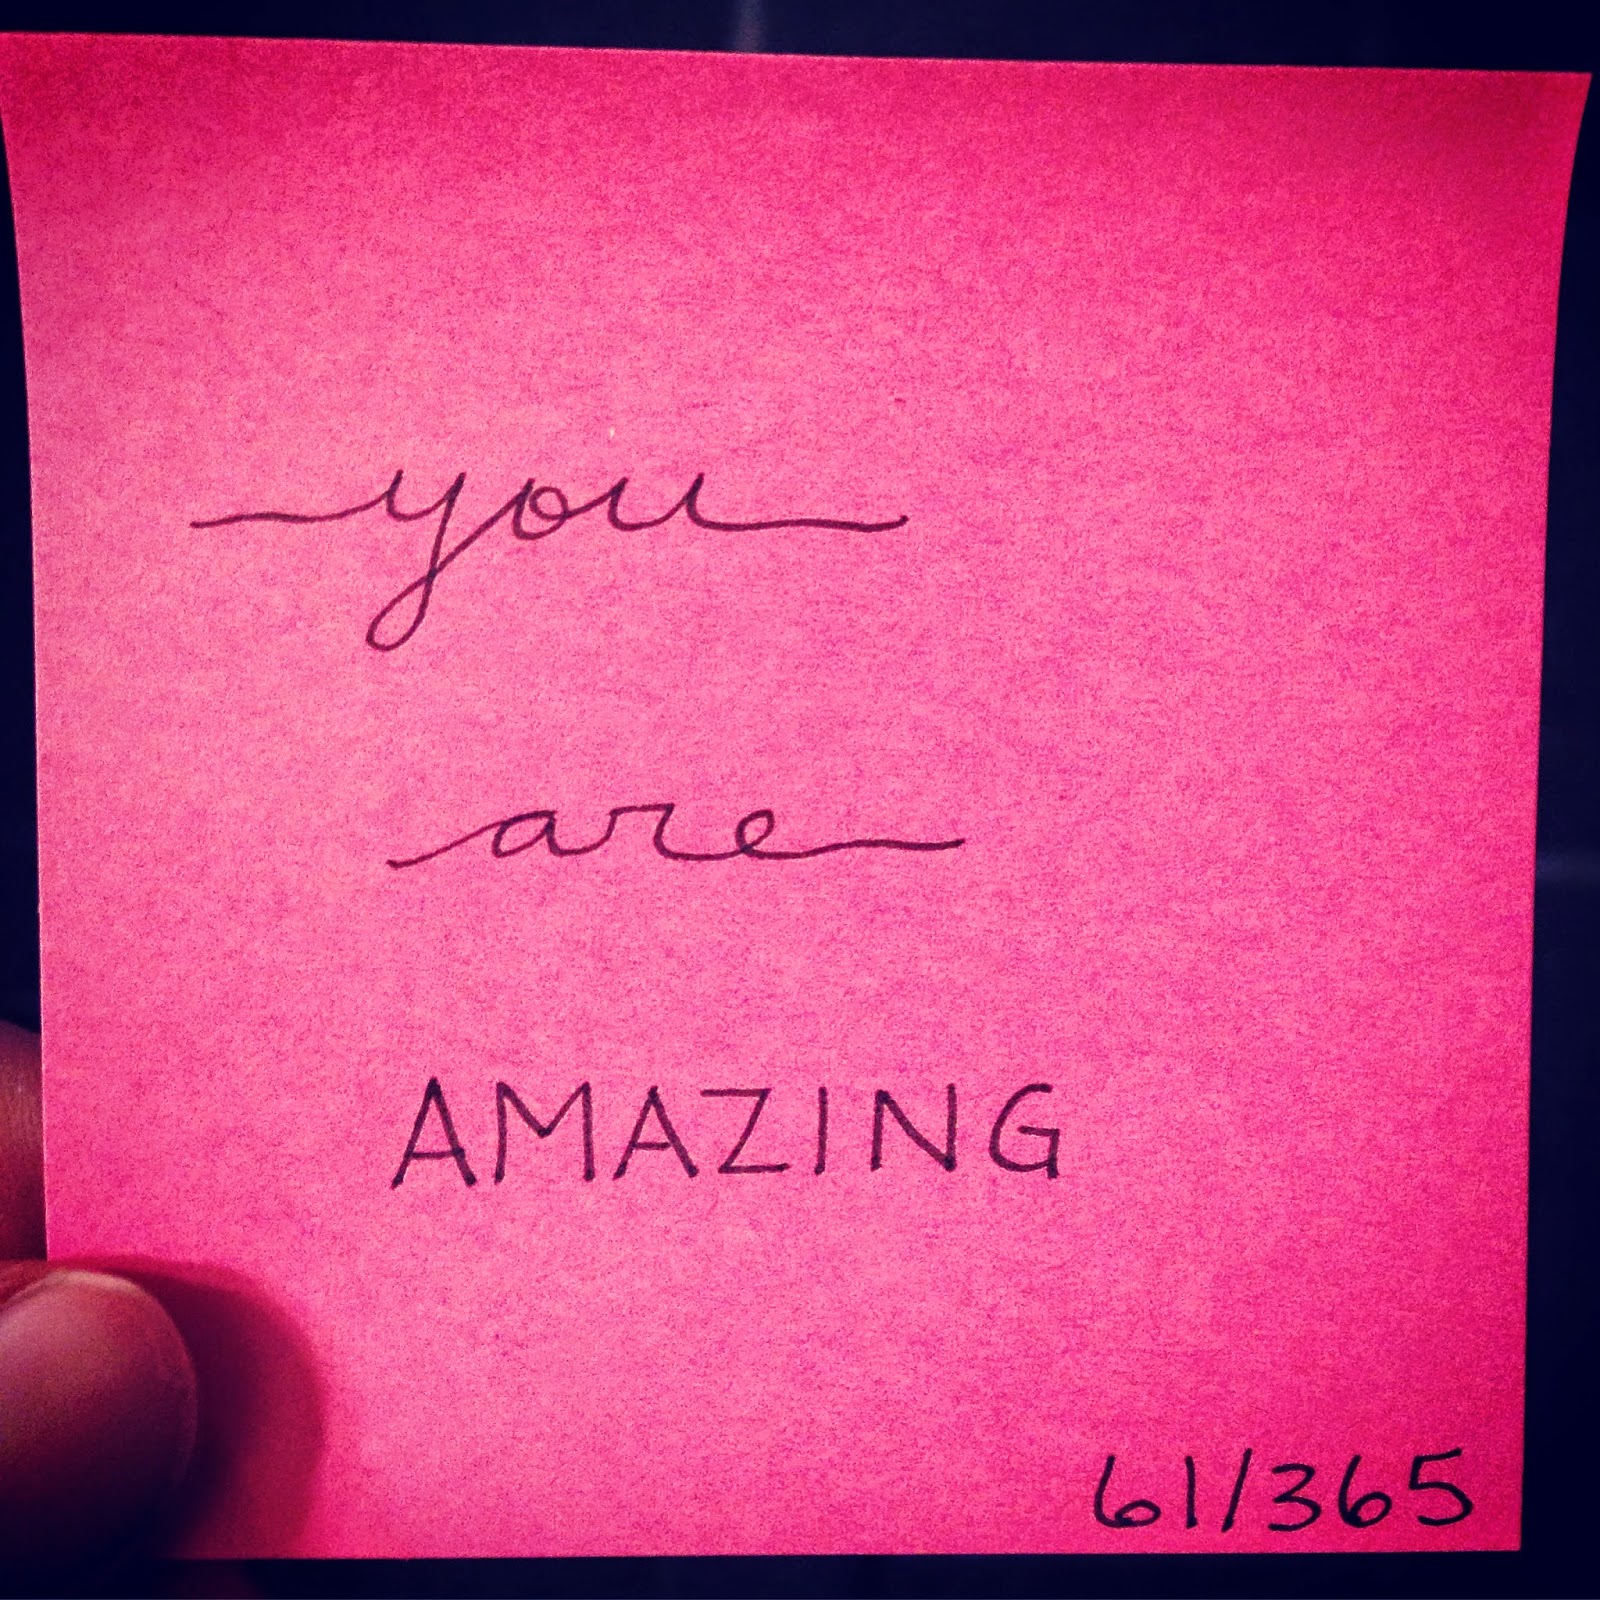 you
are
AMAZING
61/365